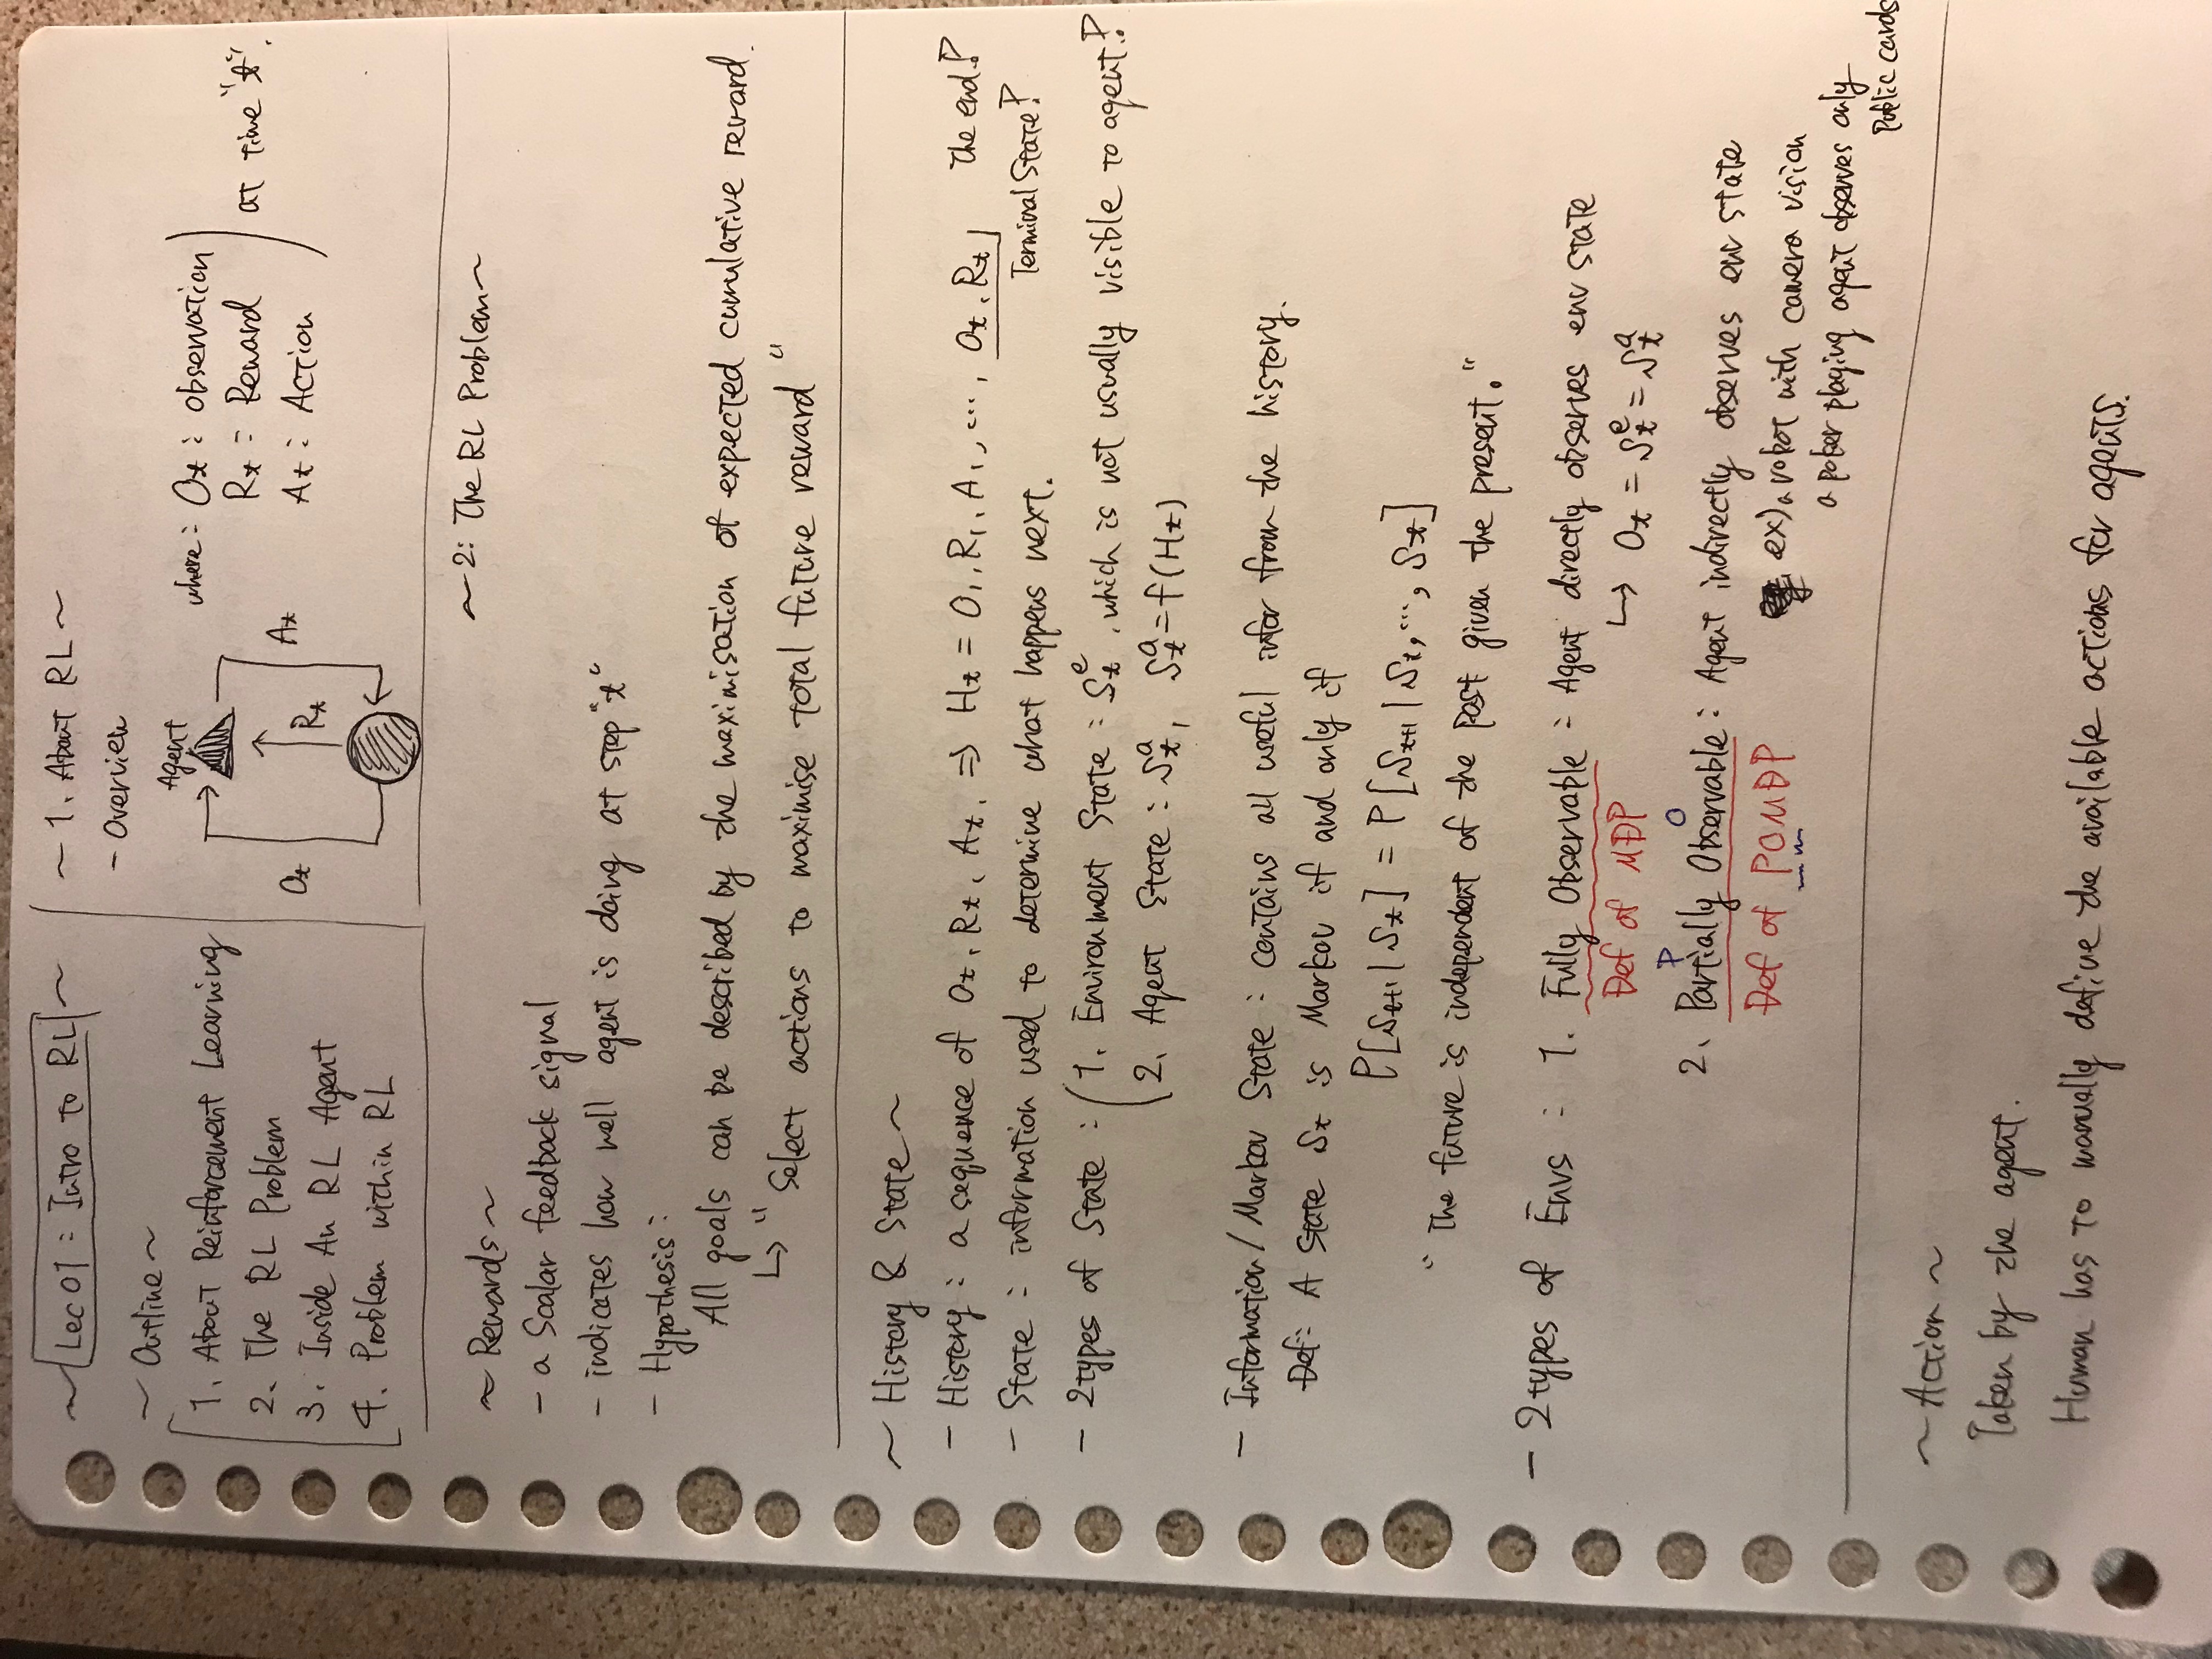 ~ Lec 01 : Intro to RL ~
~ Outline ~
1. About Reinforcement Learning
2. The RL Problem
3. Inside An RL Agent
4. Problem within RL
~ 1. About RL ~
- Overview
Agent
Ot
Rt
At
where : Ot : observation
Rt : Reward
At : Action
at time "t".
~ 2: The RL Problem ~
~ Rewards ~
- a Scalar feedback signal
- indicates how well agent is doing at step "t"
- Hypothesis :
All goals can be described by the maximisation of expected cumulative reward.
↳ "Select actions to maximise total future reward"
~ History & State ~
- History : a sequence of Ot, Rt, At, ⇒ Ht = O1, R1, A1, ..., Ot, Rt The end?
Terminal State?
- State : information used to determine what happens next.
- 2types of State : 1. Environment State : S_t^e, which is not usually visible to agent?
2. Agent State : S_t^a, S_t^a = f(Ht)
- Information / Markov State : contains all useful infor from the history.
Def: A state St is Markov if and only if
P[St+1 | St] = P[St+1 | S1, ..., St]
"The future is independent of the past given the present."
- 2types of Envs : 1. Fully Observable : Agent directly observes env state
Def of MDP
↳ Ot = S_t^e = S_t^a
P O
2. Partially Observable : Agent indirectly observes env state
Def of POMDP
ex) a robot with camera vision
a poker playing agent observes only
public cards
~ Action ~
Taken by the agent.
Human has to manually define the available actions for agents.